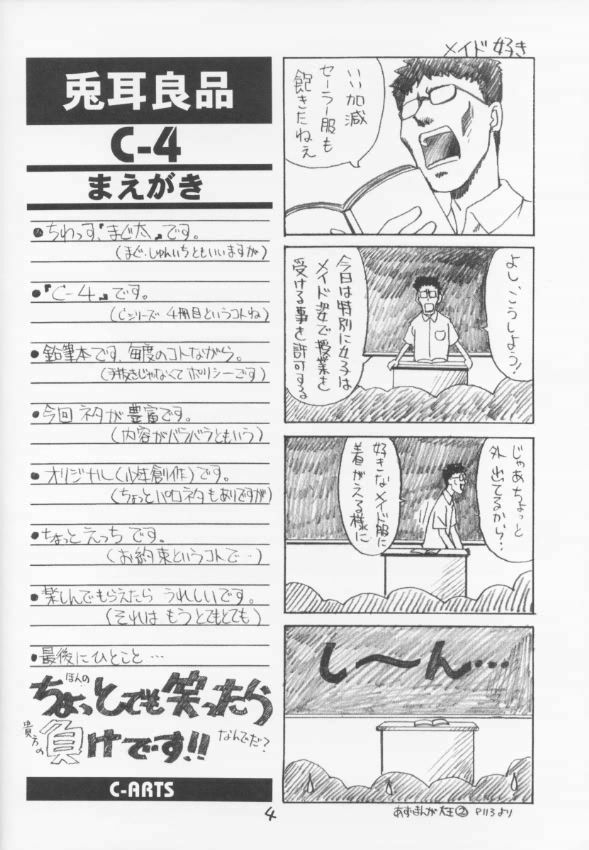 兎耳良品
C-4
まえがき
●ちわっす、『まぐ太』です。
(まぐ.じゅんいちともいいますが)
●『C-4』です。
(Cシリーズ 4冊目というコトね)
●鉛筆本です、毎度のコトながら。
(手抜きじゃなくて ポリシーです)
●今回 ネタが 豊富です。
(内容がバラバラともいう)
●オリジナル(少年創作)です。
(ちょっとパロネタもありですが)
●ちょっと えっち です。
(お約束というコトで…)
●楽しんでもらえたら うれしいです。
(それは もうとてもとても)
●最後にひとこと…
ほんの
ちょっとでも笑ったら
貴方の
負けです!!
なんでだ?
C-ARTS
メイド好き
いい加減
セーラー服も
飽きたねえ
よし、こうしよう!
今日は特別に女子は
メイド姿で授業を
受ける事を許可する
じゃあちょっと
外出てるから…
好きなメイド服に
着がえる様に
し〜ん…
あずまんが大王② P113より
4